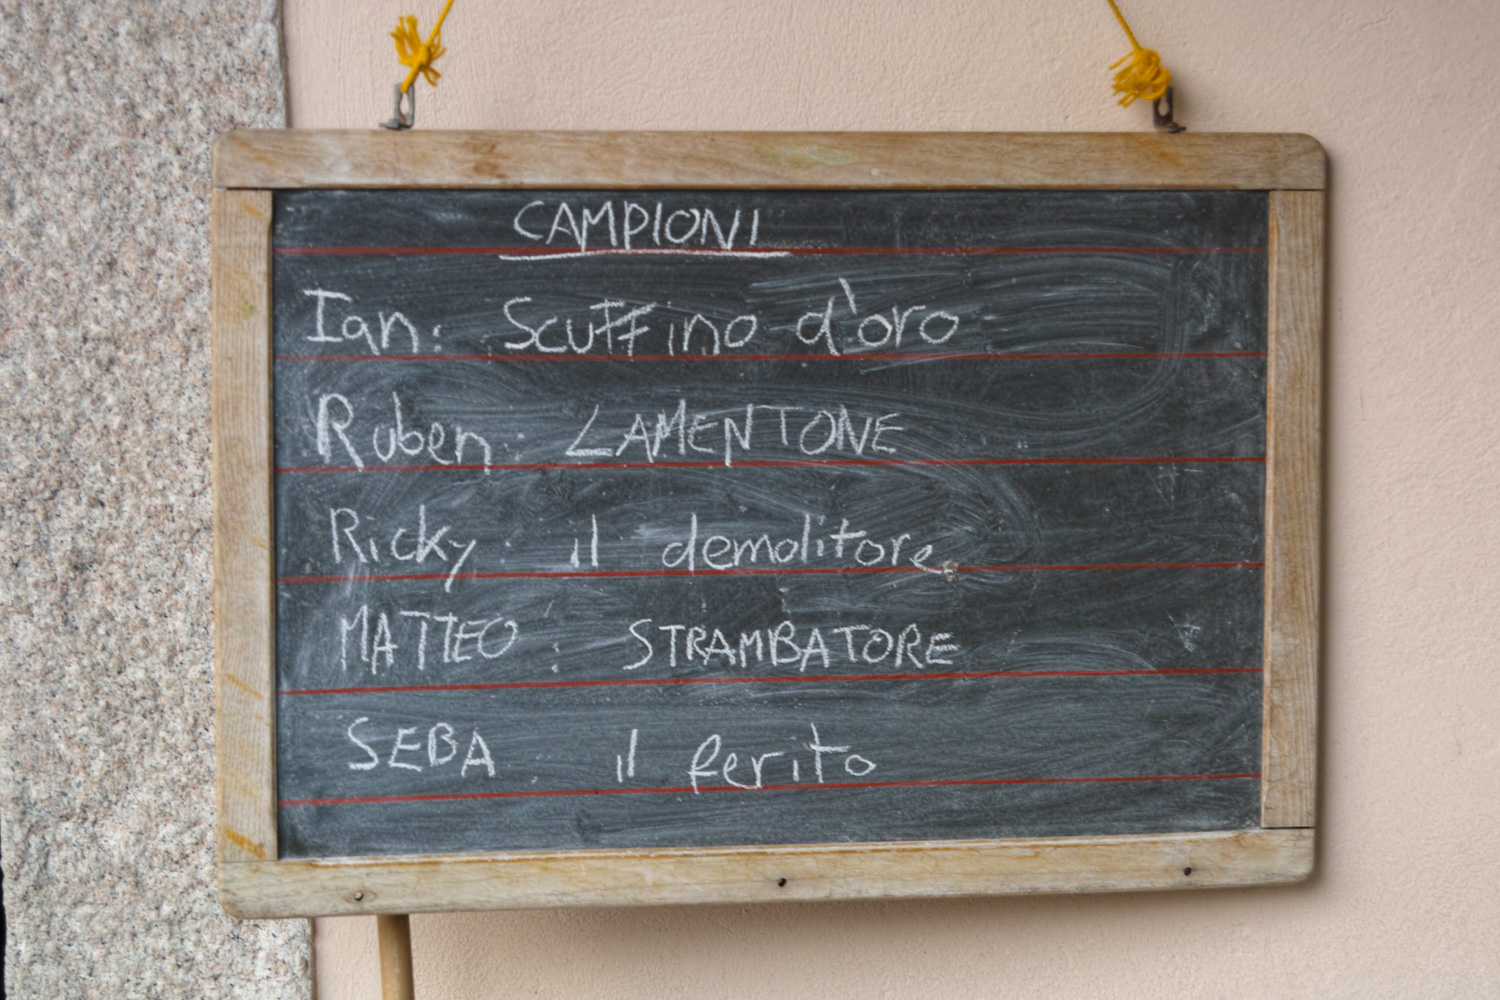 CAMPIONI
Ian: Scuffino d'oro
Ruben: LAMENTONE
Ricky: il demolitore
MATTEO: STRAMBATORE
SEBA: il ferito